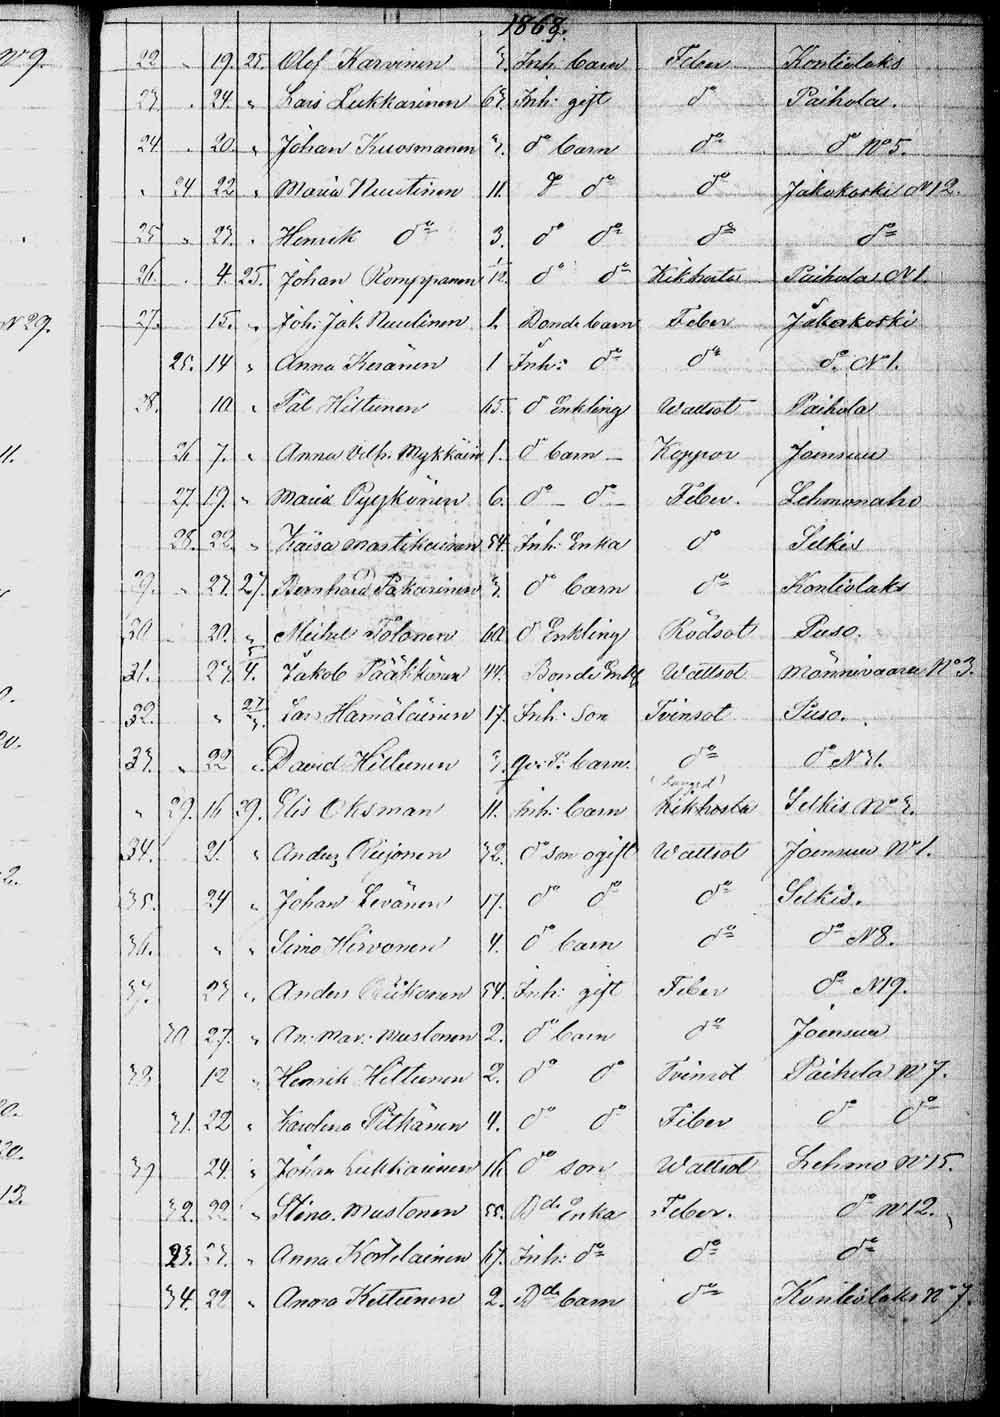 1868.
22 " 19. 25. Olof Karvinen 3. Inh: barn Feber Kontiolaks
23 . 24. " Lars Lukkarinen 63. Inh: gift do Paihola.
24. . 20. " Johan Kuosmanen 3. do barn do do No 5.
" 24 22 " Maria Nuutinen 11. do do do Jakokoski No 12.
25 " 23. " Henrik do 3. do do do do
26. . 4. 25. Johan Romppanen 1/12. do do Kikhosta Paihola N 1.
27. 15. " Joh: Jak. Nuutinen 1. Bonde barn Feber Jakokoski
25. 14 " Anna Keränen 1 Inh: do do do N 1.
28. 10 " Pål Hiltunen 65. do Enkling Wattsot Paihola
26 7. " Anna Vilh. Mykkäin 1. do barn Koppor Joensuu
27. 19. " Maria Pyykönen 6. do do Feber. Lehmonaho
28. 22. " Kaisa Mastikainen 54. Inh: Enka do Selkis
29. " 23. 27. Bernhard Pakarinen 3. do barn do Kontiolaks
30 20. " Mikel Tolonen 60. do Enkling Rödsot Puso.
31. 23. 4. Jakob Päätikönen 44. Bonde Enkl Wattsot Männivaara No 3.
32. " 27/3. Lars Hämäläinen 17. Inh: Son Tvinsot Puso.
33. " 22 " David Hiltunen 3. barn. do do N 31.
" 29. 16 29. Elis Oksman 11. Inh: barn Kikhosta Selkis No 3.
34. 21. " Anders Reijonen 32. do son ogift Wattsot Joensuu No 1.
35. 24 " Johan Levänen 17. do do do Selkis.
36. " " Simo Hirvonen 4. do barn do do N 8.
37. 23 " Anders 54. Inh: gift Feber do N 19.
30 27. " An: Mar: Mustonen 2. do barn do Joensuu
38 12 " Henrik Hiltunen 2. do do Tvinsot Paihola No 7.
31. 22 " Karolina Pitkänen 4. do do Feber do do
39 24. " Johan Lukkarinen 16. do son Wattsot Lehmo No 15.
32. 22. " Stina Mustonen 55. Bde Enka Feber. do No 12.
33. 23. " Anna Kortelainen 67. Inh: do do do
34. 22 " Anna Kettunen 2. Bde barn do Kontiolaks No 7.
No 9.
No 29.
11.
0.
20.
2.
20.
20.
13.